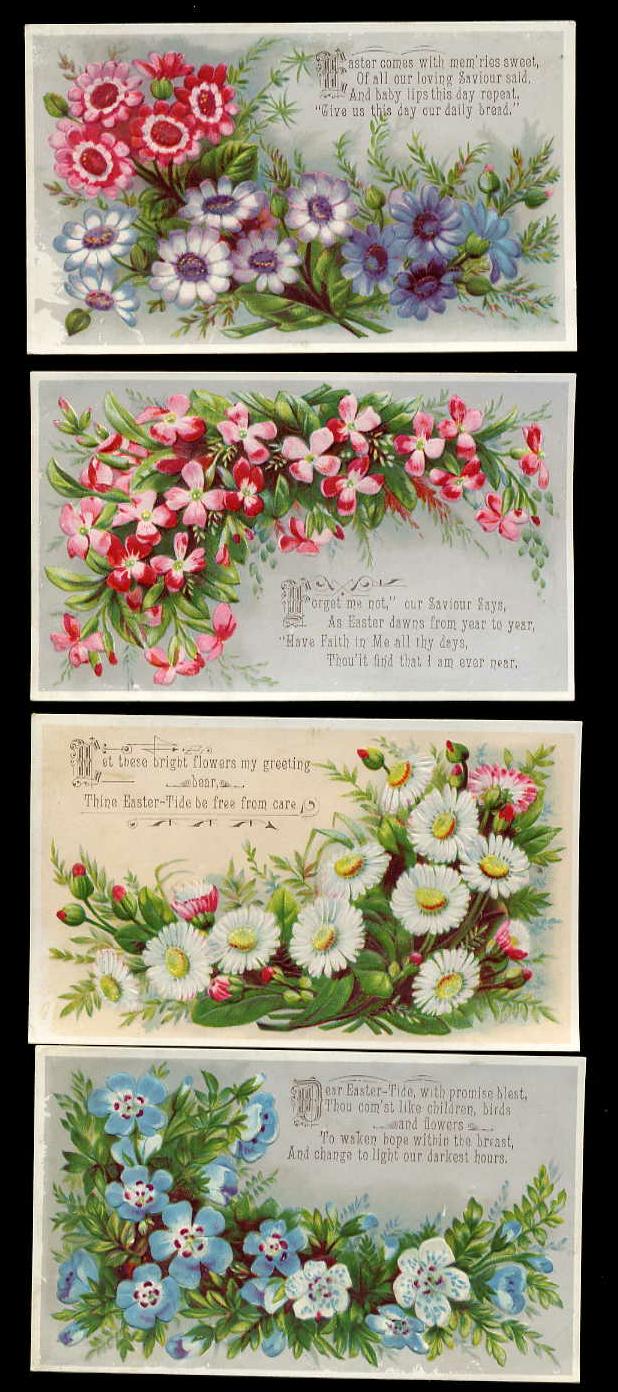 Easter comes with mem'ries sweet,
Of all our loving Saviour said,
And baby lips this day repeat,
"Give us this day our daily bread."
Forget me not," our Saviour Says,
As Easter dawns from year to year,
"Have Faith in Me all thy days,
Thou'lt find that I am ever near.
Let these bright flowers my greeting
bear,
Thine Easter-Tide be free from care
Dear Easter-Tide, with promise blest,
Thou com'st like children, birds
and flowers
To waken hope within the breast,
And change to light our darkest hours.